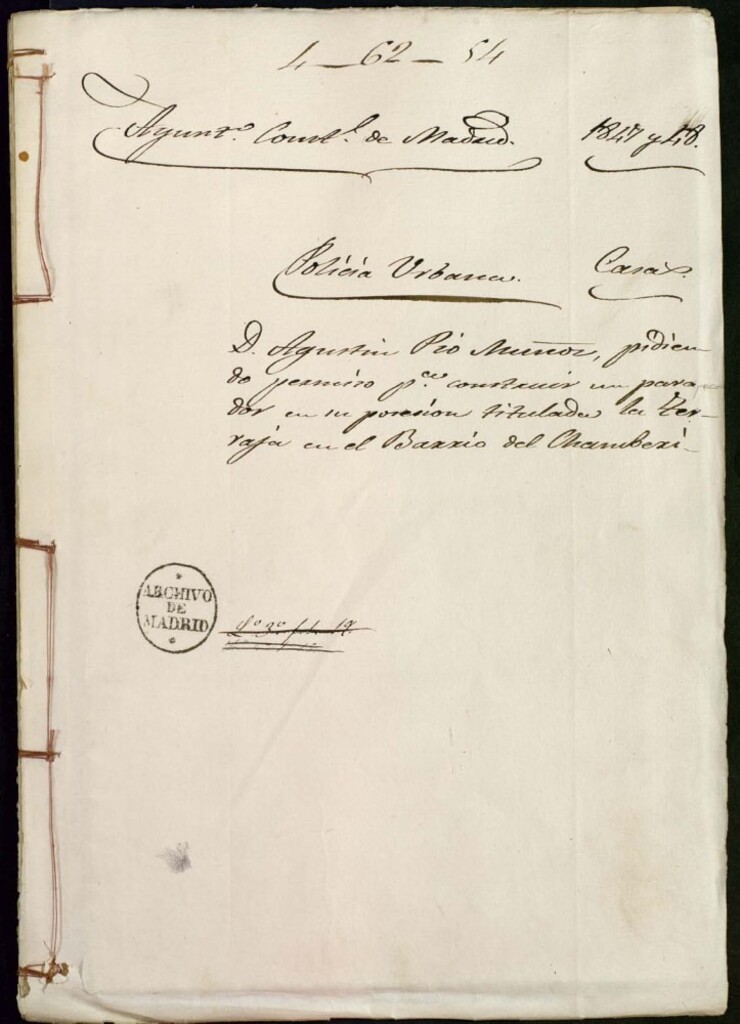 4-62-54
Ayunt.º Const.l de Madrid. 1847 y 48.
Policía Urbana. Casas.
D. Agustin Pio Muñoz, pidien
do permiso p.ª construir un para
dor en su posesion titulada la Ter-
raja en el Barrio del Chamberi-
ARCHIVO
DE
MADRID